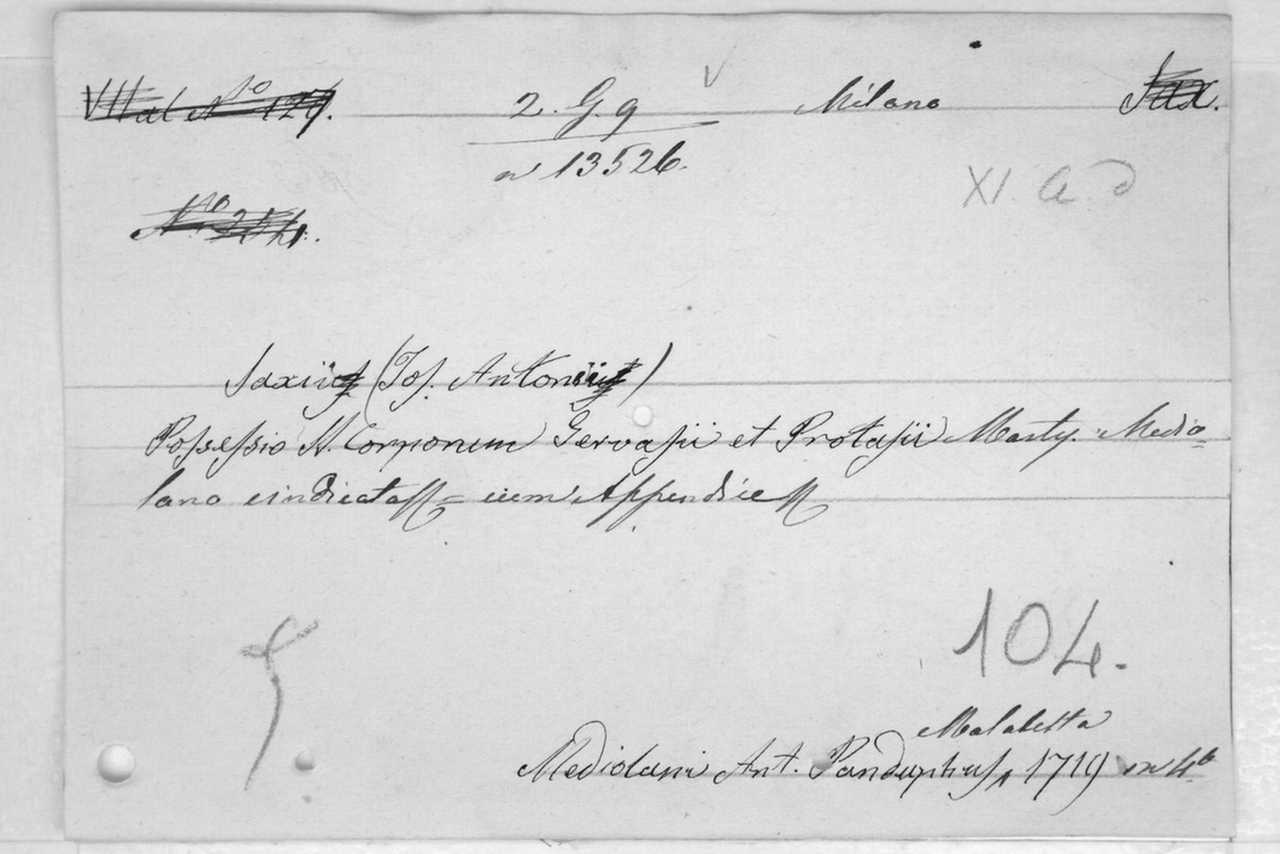 VII al Nº 129. 2. G. 9 Milano Sax.
n 13526.
XI. a. d
Nº 254.
Saxius (Jos. Antonius)
Possessio SS. Corporum Gervasii et Protasii Marty. Medio-
lano vindicata = cum Appendice
104.
Malatesta
Mediolani Ant. Pandulphus, 1719 in 4º